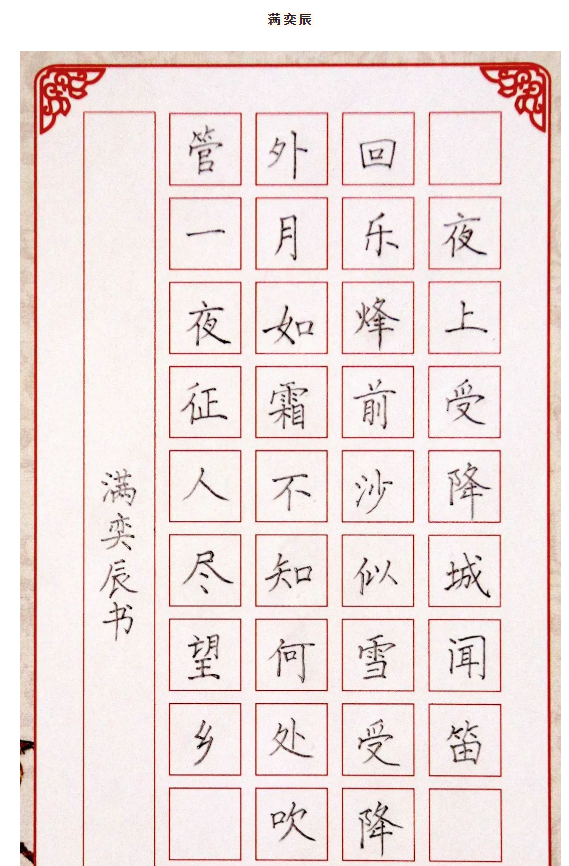 满奕辰
夜上受降城闻笛
回乐烽前沙似雪受降
外月如霜不知何处吹
管一夜征人尽望乡
满奕辰书